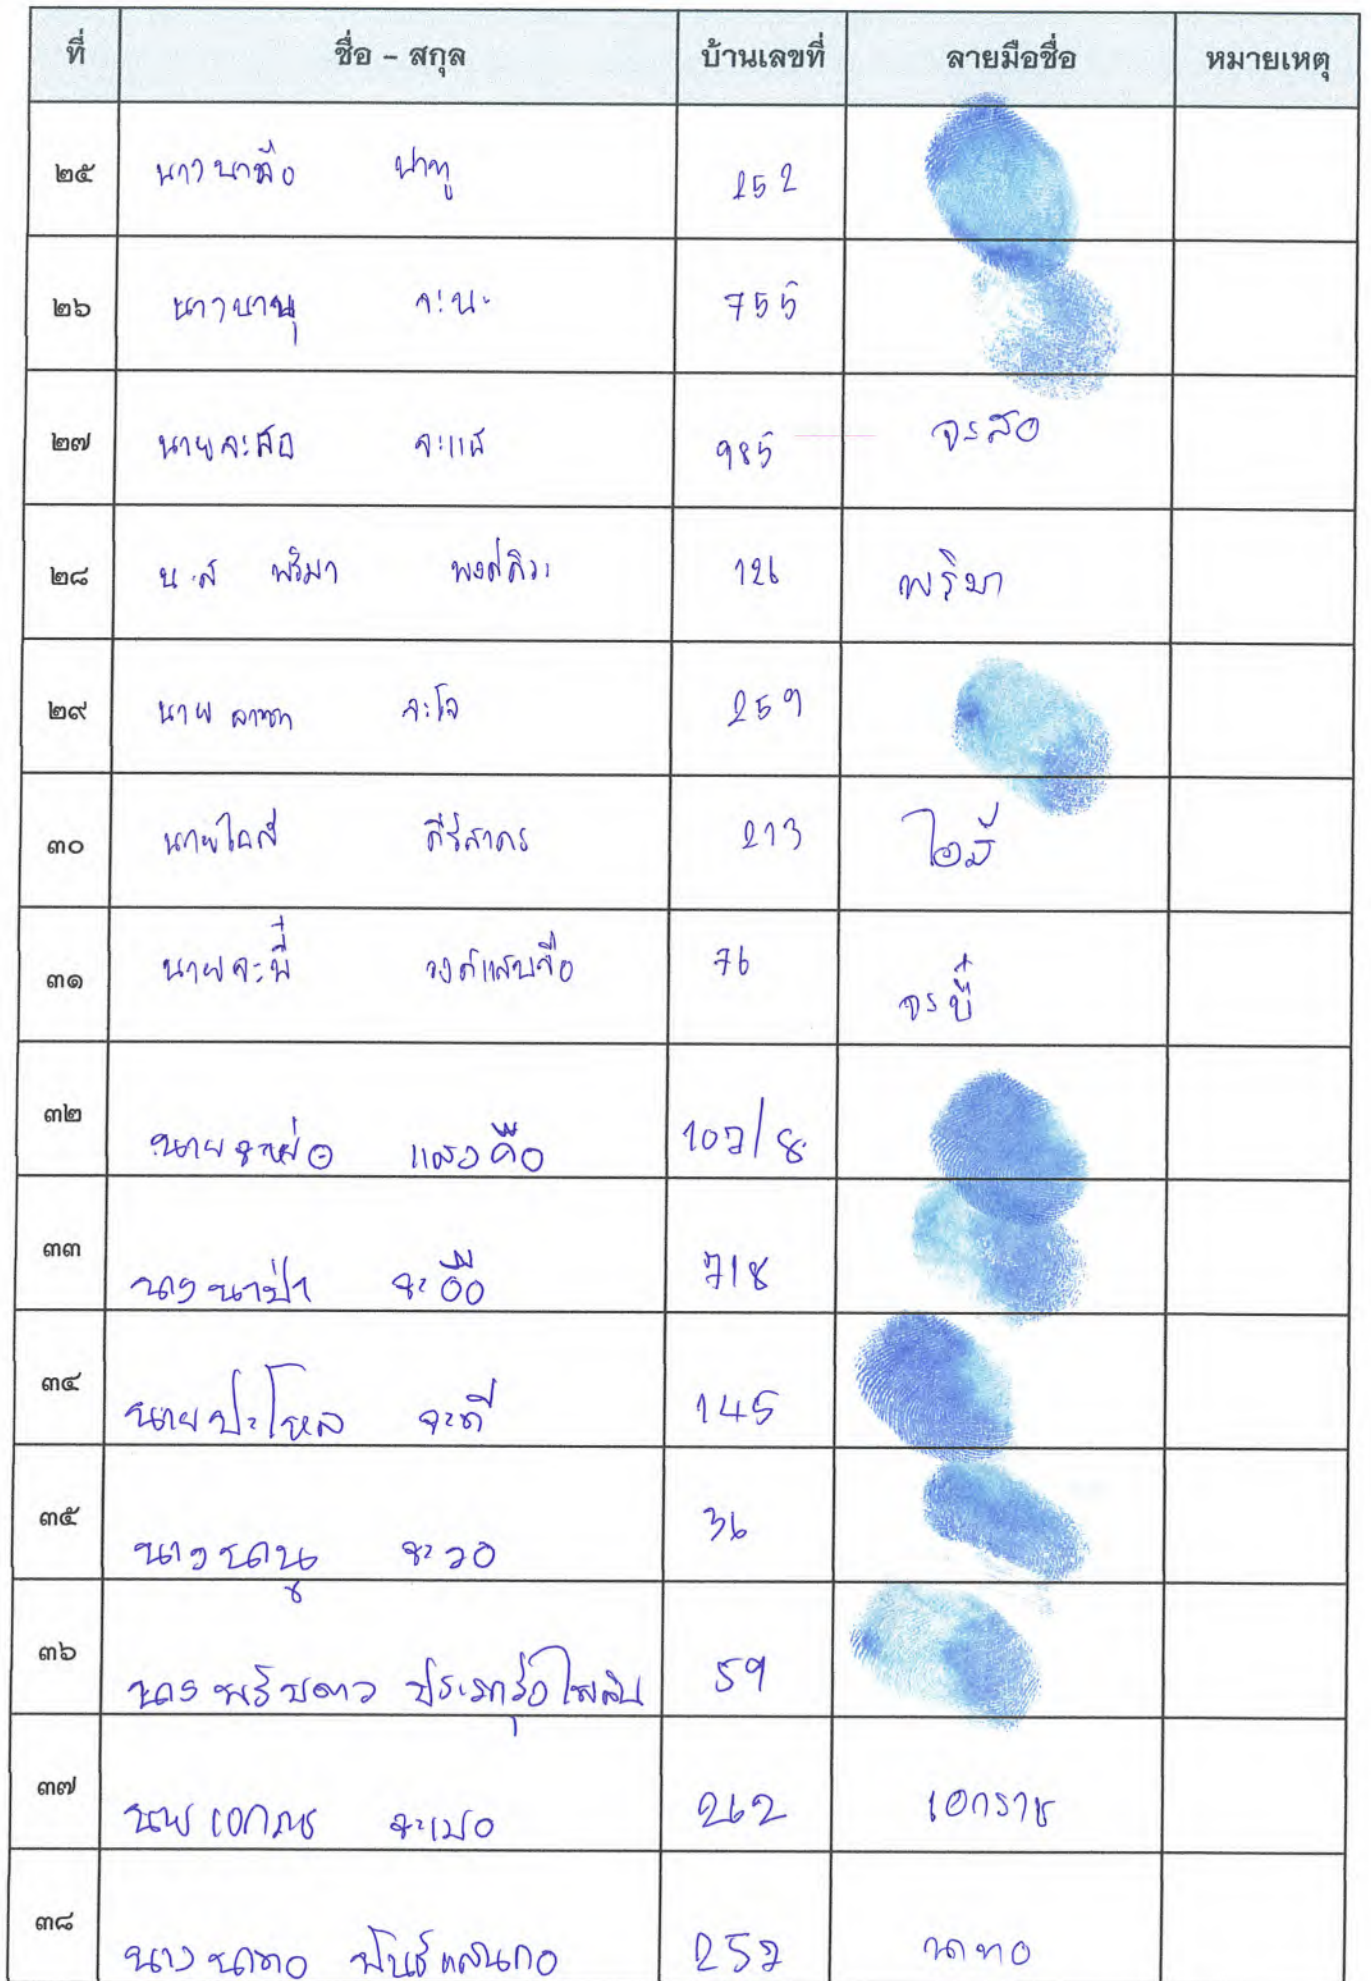 ที่ ชื่อ - สกุล บ้านเลขที่ ลายมือชื่อ หมายเหตุ
๒๕ นาง นาสือ ปาทู 252
๒๖ นาง นานุ จะนะ 755
๒๗ นาย จะสอ จะแส 985 จะสอ
๒๘ น.ส พริมา 126 พริมา
๒๙ นาย จะโจ 259
๓๐ นาย คีรีสาคร 213
๓๑ นาย จะบี๋ 76 จะบี๋
๓๒ นาย แสงคือ 107/8
๓๓ นาง นาป่า จะอือ 718
๓๔ นาย ปะโหล จะตี 145
๓๕ นาง นานู จะวอ 36
๓๖ นาง พริบดาว 59
๓๗ นาย เอกราช จะเบอ 262 เอกราช
๓๘ นาง นาทอ พันธ์แสนกอ 257 นาทอ